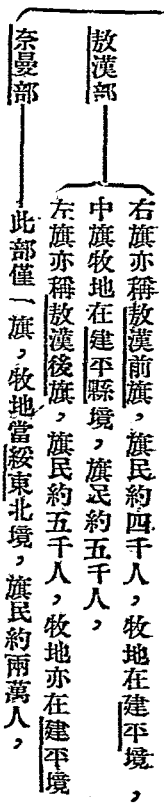 敖漢部
右旗亦稱敖漢前旗，旗民約四千人，牧地在建平境，
中旗牧地在建平縣境，旗民約五千人，
左旗亦稱敖漢後旗，旗民約五千人，牧地亦在建平境
奈曼部
此部僅一旗，牧地當綏東北境，旗民約兩萬人，